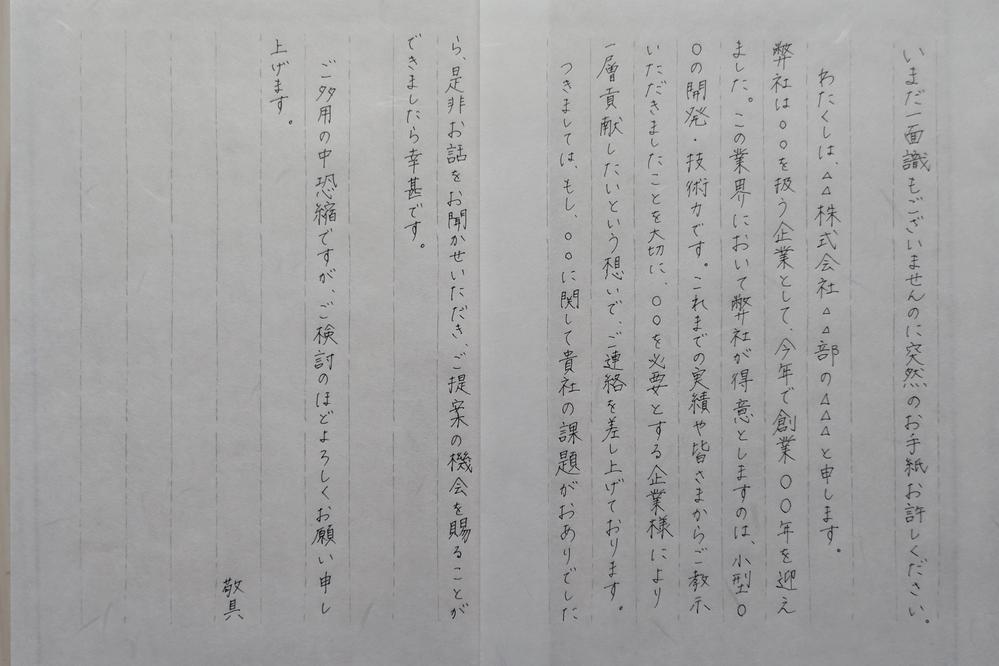 いまだ一面識もございませんのに突然のお手紙お許しください。
わたくしは、△△株式会社△△部の△△△と申します。
弊社は○○を扱う企業として、今年で創業○○年を迎え
ました。この業界において弊社が得意としますのは、小型○
○の開発・技術力です。これまでの実績や皆さまからご教示
いただきましたことを大切に、○○を必要とする企業様により
一層貢献したいという想いで、ご連絡を差し上げております。
つきましては、もし、○○に関して貴社の課題がおありでした
ら、是非お話をお聞かせいただき、ご提案の機会を賜ることが
できましたら幸甚です。
ご多用の中恐縮ですが、ご検討のほどよろしくお願い申し
上げます。
敬具